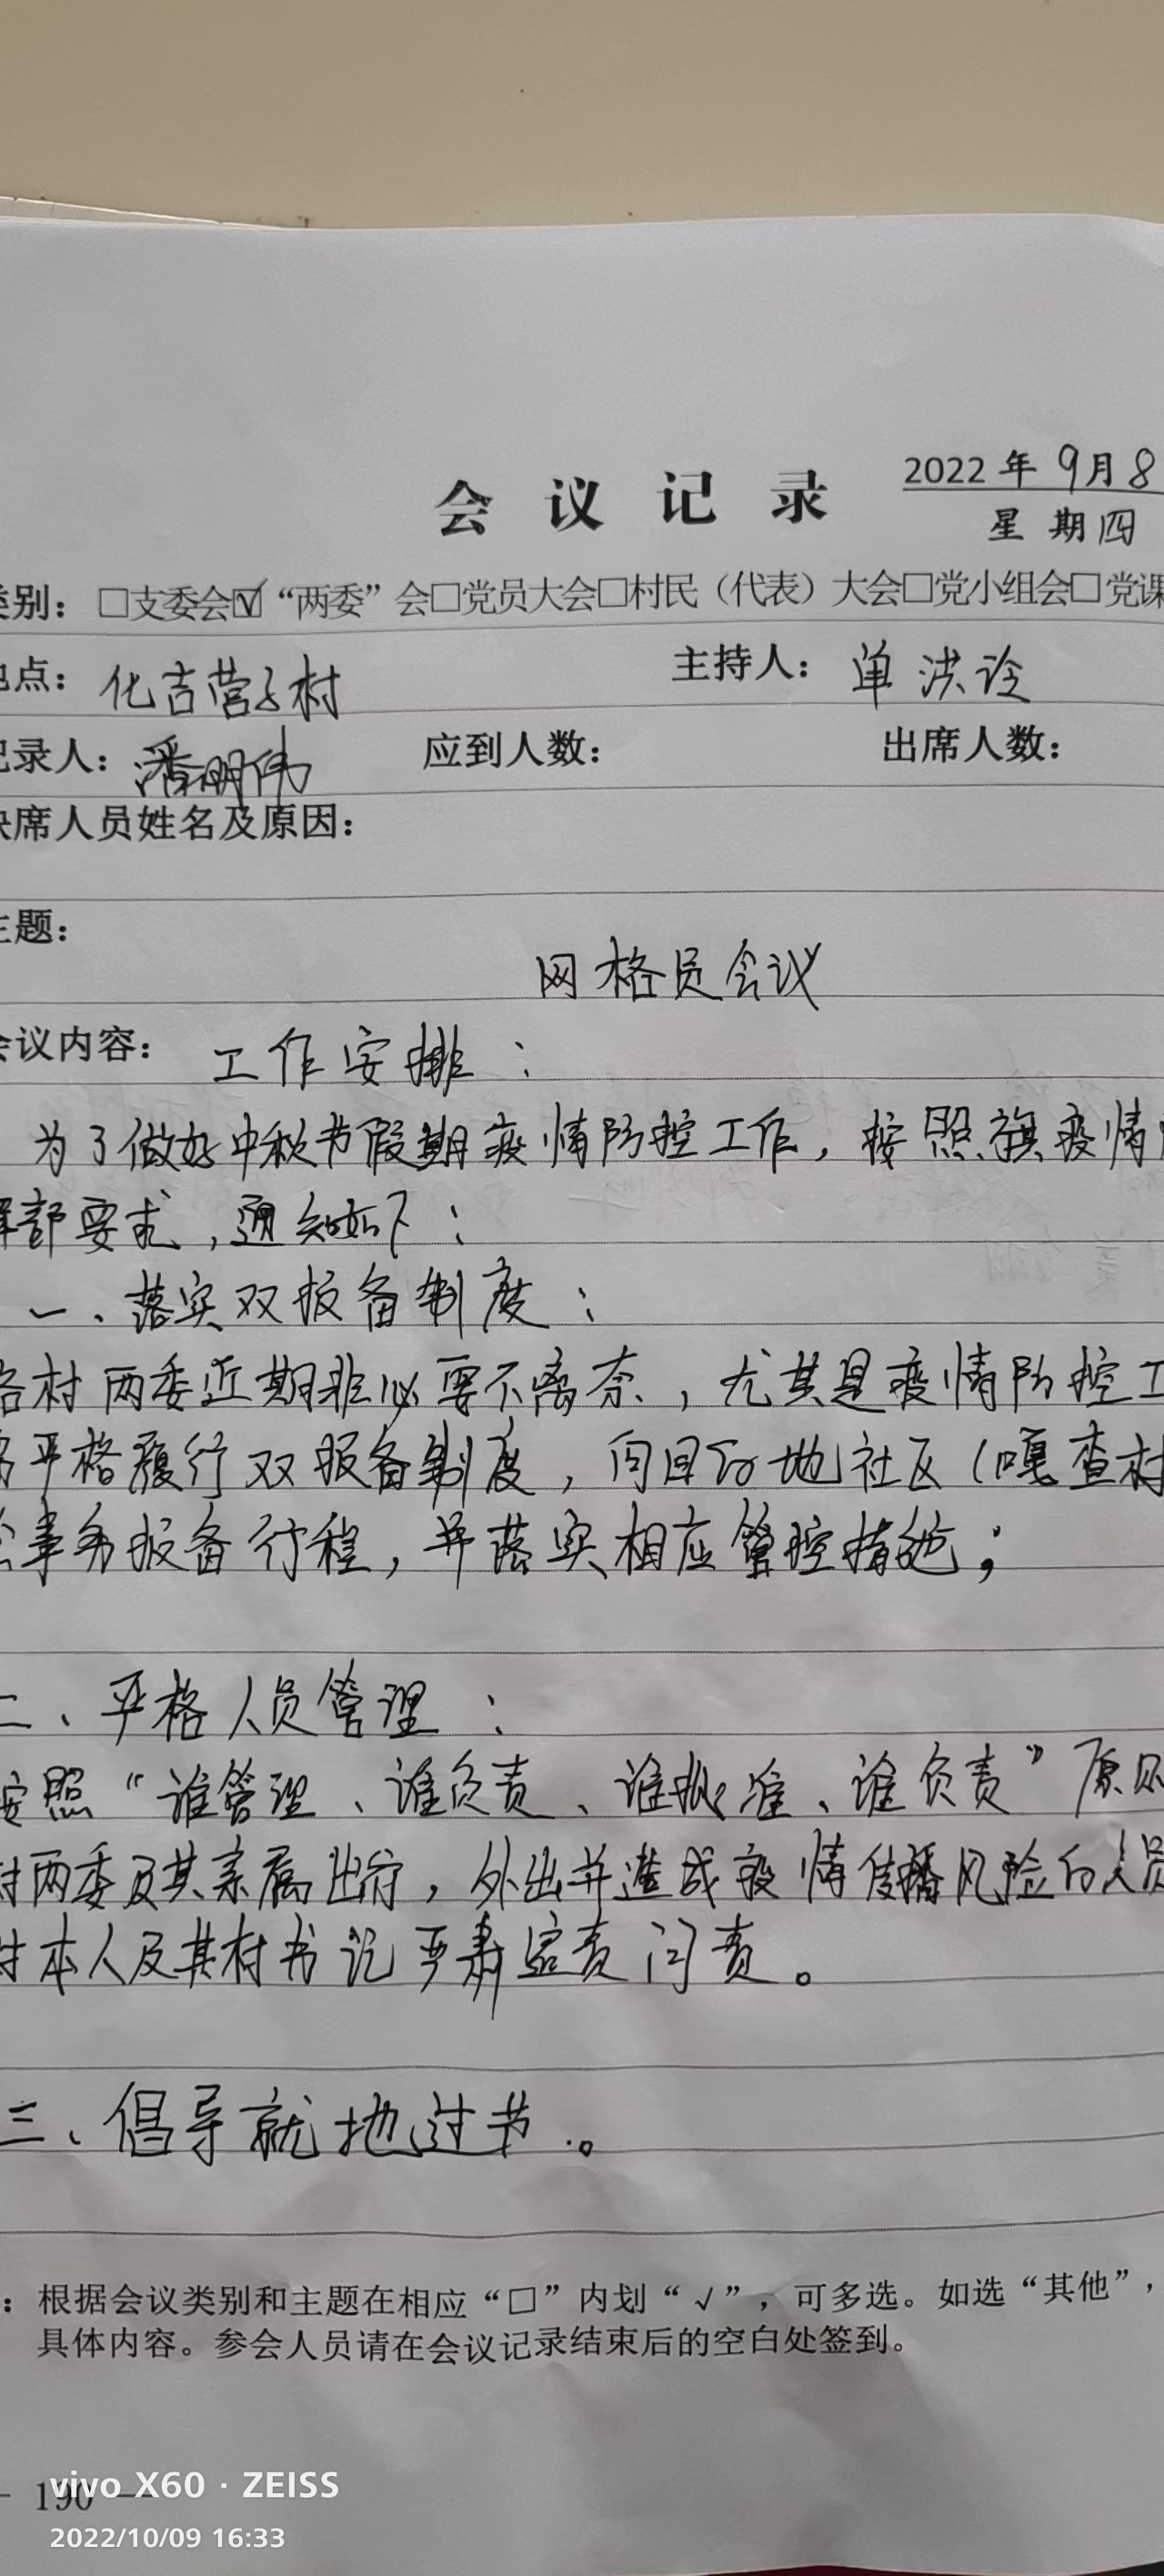 会 议 记 录
2022 年 9月 8
星 期 四
类别：□支委会☑“两委”会□党员大会□村民（代表）大会□党小组会□党课
地点：化吉营子村 主持人：单洪
记录人：潘明伟 应到人数： 出席人数：
缺席人员姓名及原因：
主题：
网格员会议
会议内容：工作安排：
为了做好中秋节假期疫情防控工作，按照旗疫情
挥部要求，通知如下：
一、落实双报备制度：
各村两委近期非必要不离奈，尤其是疫情防控工
严格履行双报备制度，向目的地社区（嘎查村
事务报备行程，并落实相应管控措施；
二、严格人员管理：
按照“谁管理、谁负责、谁批准、谁负责”原则
村两委及其亲属出行，外出并造成疫情传播风险的人员
对本人及其村书记严肃追责问责。
三、倡导就地过节。
：根据会议类别和主题在相应“□”内划“√”，可多选。如选“其他”，
具体内容。参会人员请在会议记录结束后的空白处签到。
— 190 —
vivo X60 · ZEISS
2022/10/09 16:33